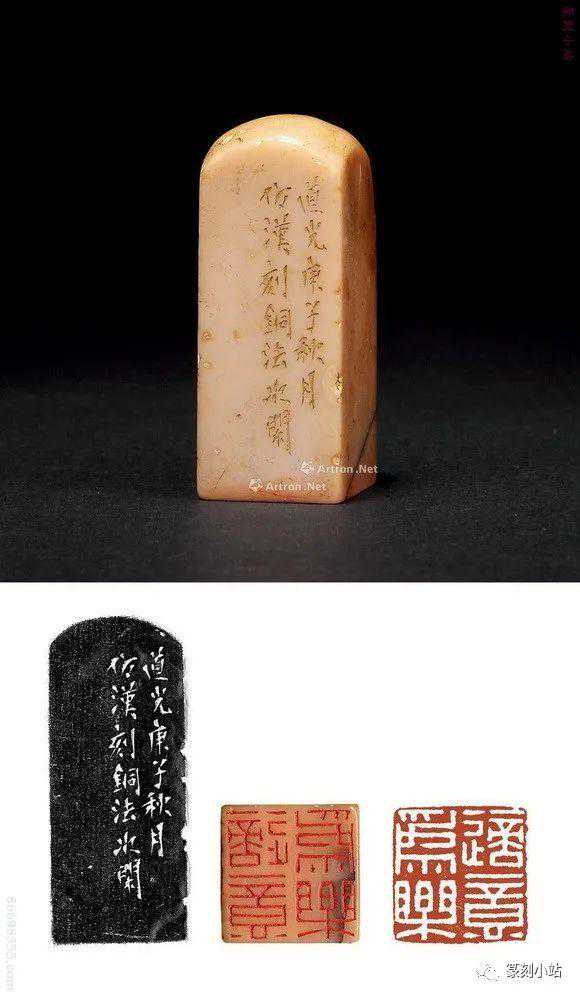 篆刻小站
道光庚子秋月
仿漢刻銅法次閑
Artron.Net
Artron.Net
道光庚子秋月
仿漢刻銅法次閑
適意
爲樂
篆刻小站